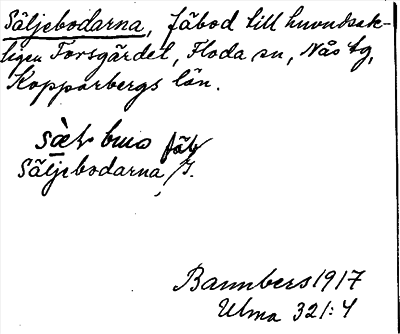 Säljebodarna, fäbod till huvudsak-
ligen Forsgärdet, Floda sn, Nås tg,
Kopparbergs län.
fäb
Säljebodarna,
Bannbers 1917
Ulma 321:4